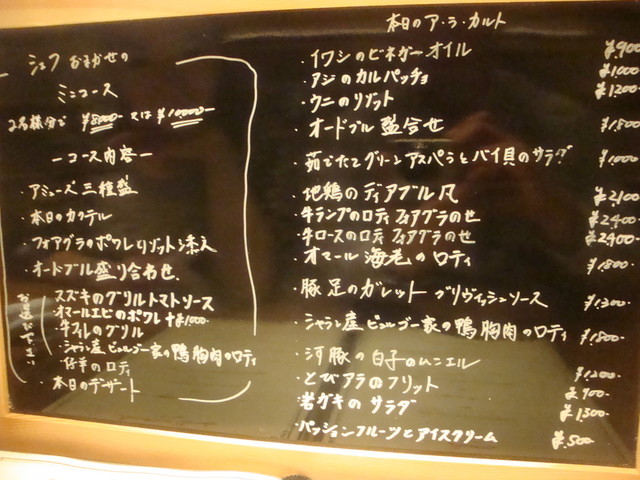 シェフおまかせの
ミニコース
2名様分で ¥8000- 又は ¥10000-
ーコース内容ー
・アミューズ三種盛
・本日のカクテル
・フォアグラのポワレ リゾット添え
・オードブル盛り合わせ
お選び下さい
スズキのグリルトマトソース
・オマールエビのポワレ +¥1000-
・牛フィレのグリル
・シャラン産ビュルゴー家の鴨胸肉のロティ
・仔羊のロティ
・本日のデザート
本日のア・ラ・カルト
・イワシのビネガーオイル ¥900
・アジのカルパッチョ ¥1000-
・ウニのリゾット ¥1200-
・オードブル盛合せ ¥1,800-
・茹でたてグリーンアスパラとバイ貝のサラダ ¥1000-
・地鶏のディアブル風 ¥2100-
・牛ランプのロティ フォアグラのせ ¥2400-
・牛ロースのロティ フォアグラのせ ¥2400-
・オマール海老のロティ ¥1,800-
・豚足のガレット グリヴィッシュソース ¥1,300-
・シャラン産ビュルゴー家の鴨胸肉のロティ ¥1,800-
・河豚の白子のムニエル ¥1200-
・とびアラのフリット ¥900-
・岩ガキのサラダ ¥1,300-
・パッションフルーツとアイスクリーム ¥,500-